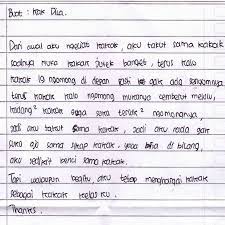 Buat : Kak Dila.
Dari awal aku ngeliat kakak, aku takut sama kakak
soalnya muka kakak jutek banget, terus kalo
kakak lg ngomong di depan pasti ga ada senyumnya
terus kakak kalo ngomong mukanya cemberut melulu,
kadang² kakak suka teriak² ngomongnya,
jadi aku takut sama kakak, jadi aku rada gak
suka aja sama sikap kakak, yaaa bisa di bilang,
aku sedikit benci sama kakak.
Tapi walaupun begitu aku tetap menghargai kakak
sebagai kakak kelas ku.
Thanks.